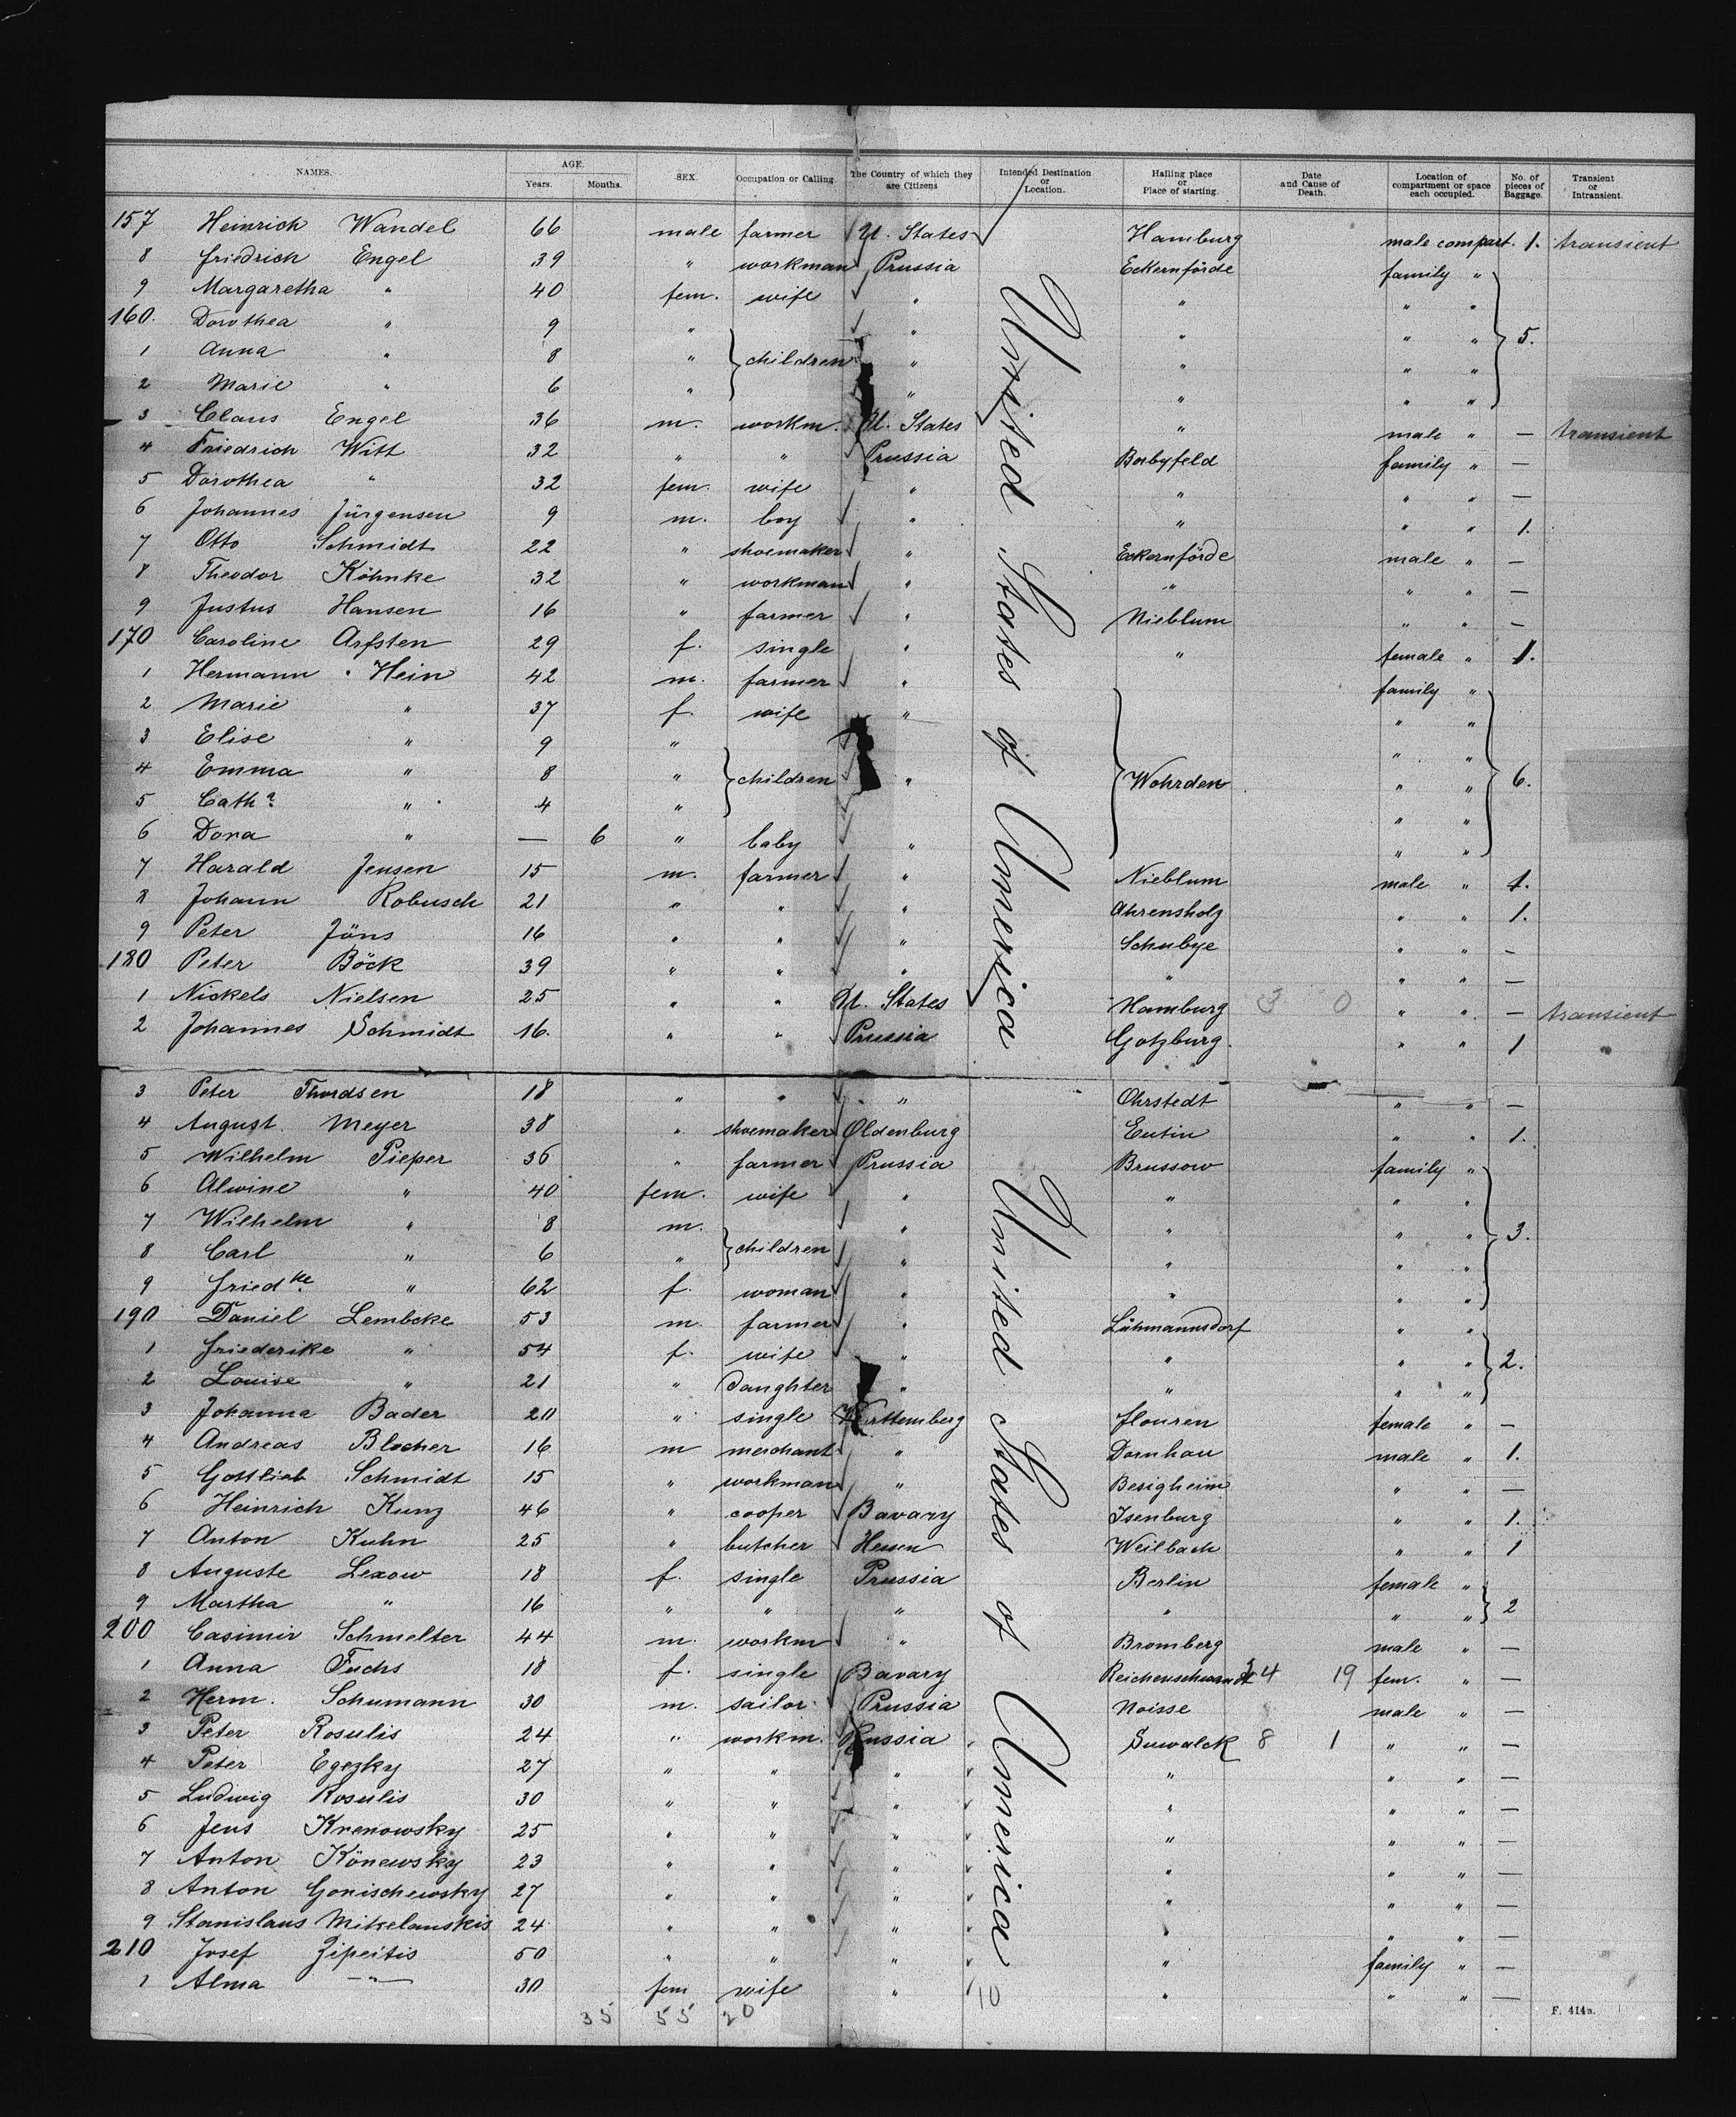 NAMES. AGE. Years. Months. SEX. Occupation or Calling The Country of which they are Citizens Intended Destination or Location. Hailing place or Place of starting. Date and Cause of Death. Location of compartment or space each occupied. No. of pieces of Baggage. Transient or Intransient.
157 Heinrich Wandel 66 male farmer U. States Hamburg male compart. 1. transient
8 Friedrich Engel 39 " workman Prussia Eckernförde family "
9 Margaretha " 40 fem. wife " " " "
160. Dorothea " 9 " " " " "
1 Anna " 8 " children " " " " 5.
2 Marie " 6 " " " " "
3 Claus Engel 36 m. workm. U. States " male " — transient
4 Friedrich Witt 32 " " Prussia Borbyfeld family " —
5 Dorothea " 32 fem. wife " " " " —
6 Johannes Jürgensen 9 m. boy " " " " 1.
7 Otto Schmidt 22 " shoemaker " Eckernförde male " —
8 Theodor Köhnke 32 " workman " " " " —
9 Justus Hansen 16 " farmer " Nieblum " " —
170 Caroline Arfsten 29 f. single " " female " 1.
1 Hermann Hein 42 m. farmer " family "
2 Marie " 37 f. wife " " "
3 Elise " 9 " " "
4 Emma " 8 " children " Wohrden " " 6.
5 Catha " 4 " " "
6 Dora " — 6 " baby " " "
7 Harald Jensen 15 m. farmer " Nieblum male " 1.
8 Johann Robusch 21 " " " Ahrensholz " " 1.
9 Peter Jöns 16 " " " Schubye " " —
180 Peter Böck 39 " " " " " " —
1 Nickels Nielsen 25 " " U. States Hamburg 3 0 " " — transient
2 Johannes Schmidt 16. " " Prussia Gotzburg. " " 1
United States of America
3 Peter Thordsen 18 " " " Ohrstedt " " —
4 August Meyer 38 " shoemaker Oldenburg Eutin " " 1.
5 Wilhelm Pieper 36 " farmer Prussia Brussow family "
6 Alwine " 40 fem. wife " " " "
7 Wilhelm " 8 m. " " " " 3.
8 Carl " 6 " children " " " "
9 Friedke " 62 f. woman " " " "
190 Daniel Lembcke 53 m. farmer " Lühmannsdorf " "
1 Friederike " 54 f. wife " " " " 2.
2 Louise " 21 " daughter " " " "
3 Johanna Bader 20 " single Württemberg female " —
4 Andreas Blocher 16 m merchant " Dornhan male " 1.
5 Gottlieb Schmidt 15 " workman " Besigheim " " —
6 Heinrich Kunz 46 " cooper Bavary Isenburg " " 1.
7 Anton Kuhn 25 " butcher Hessen Weilbach " " 1
8 Auguste Lexow 18 f. single Prussia Berlin female "
9 Martha " 16 " " " " " " 2
200 Casimir Schmelter 44 m. workm " Bromberg male " —
1 Anna Fuchs 18 f. single Bavary 4 19 fem. " —
2 Herm. Schumann 30 m. sailor Prussia Noisse male " —
3 Peter Rosulis 24 " workm. Russia Suwalck 8 1 " " —
4 Peter Egezky 27 " " " " " " —
5 Ludwig Rosulis 30 " " " " " " —
6 Jens Krenowsky 25 " " " " " " —
7 Anton Könewsky 23 " " " " " " —
8 Anton Gonischewsky 27 " " " " " " —
9 Stanislaus Mikelauskis 24 " " " " " " —
210 Josef Zipeitis 50 " " " " family " —
1 Alma —"— 30 fem wife " " " " —
United States of America
35 55 20
F. 414a.